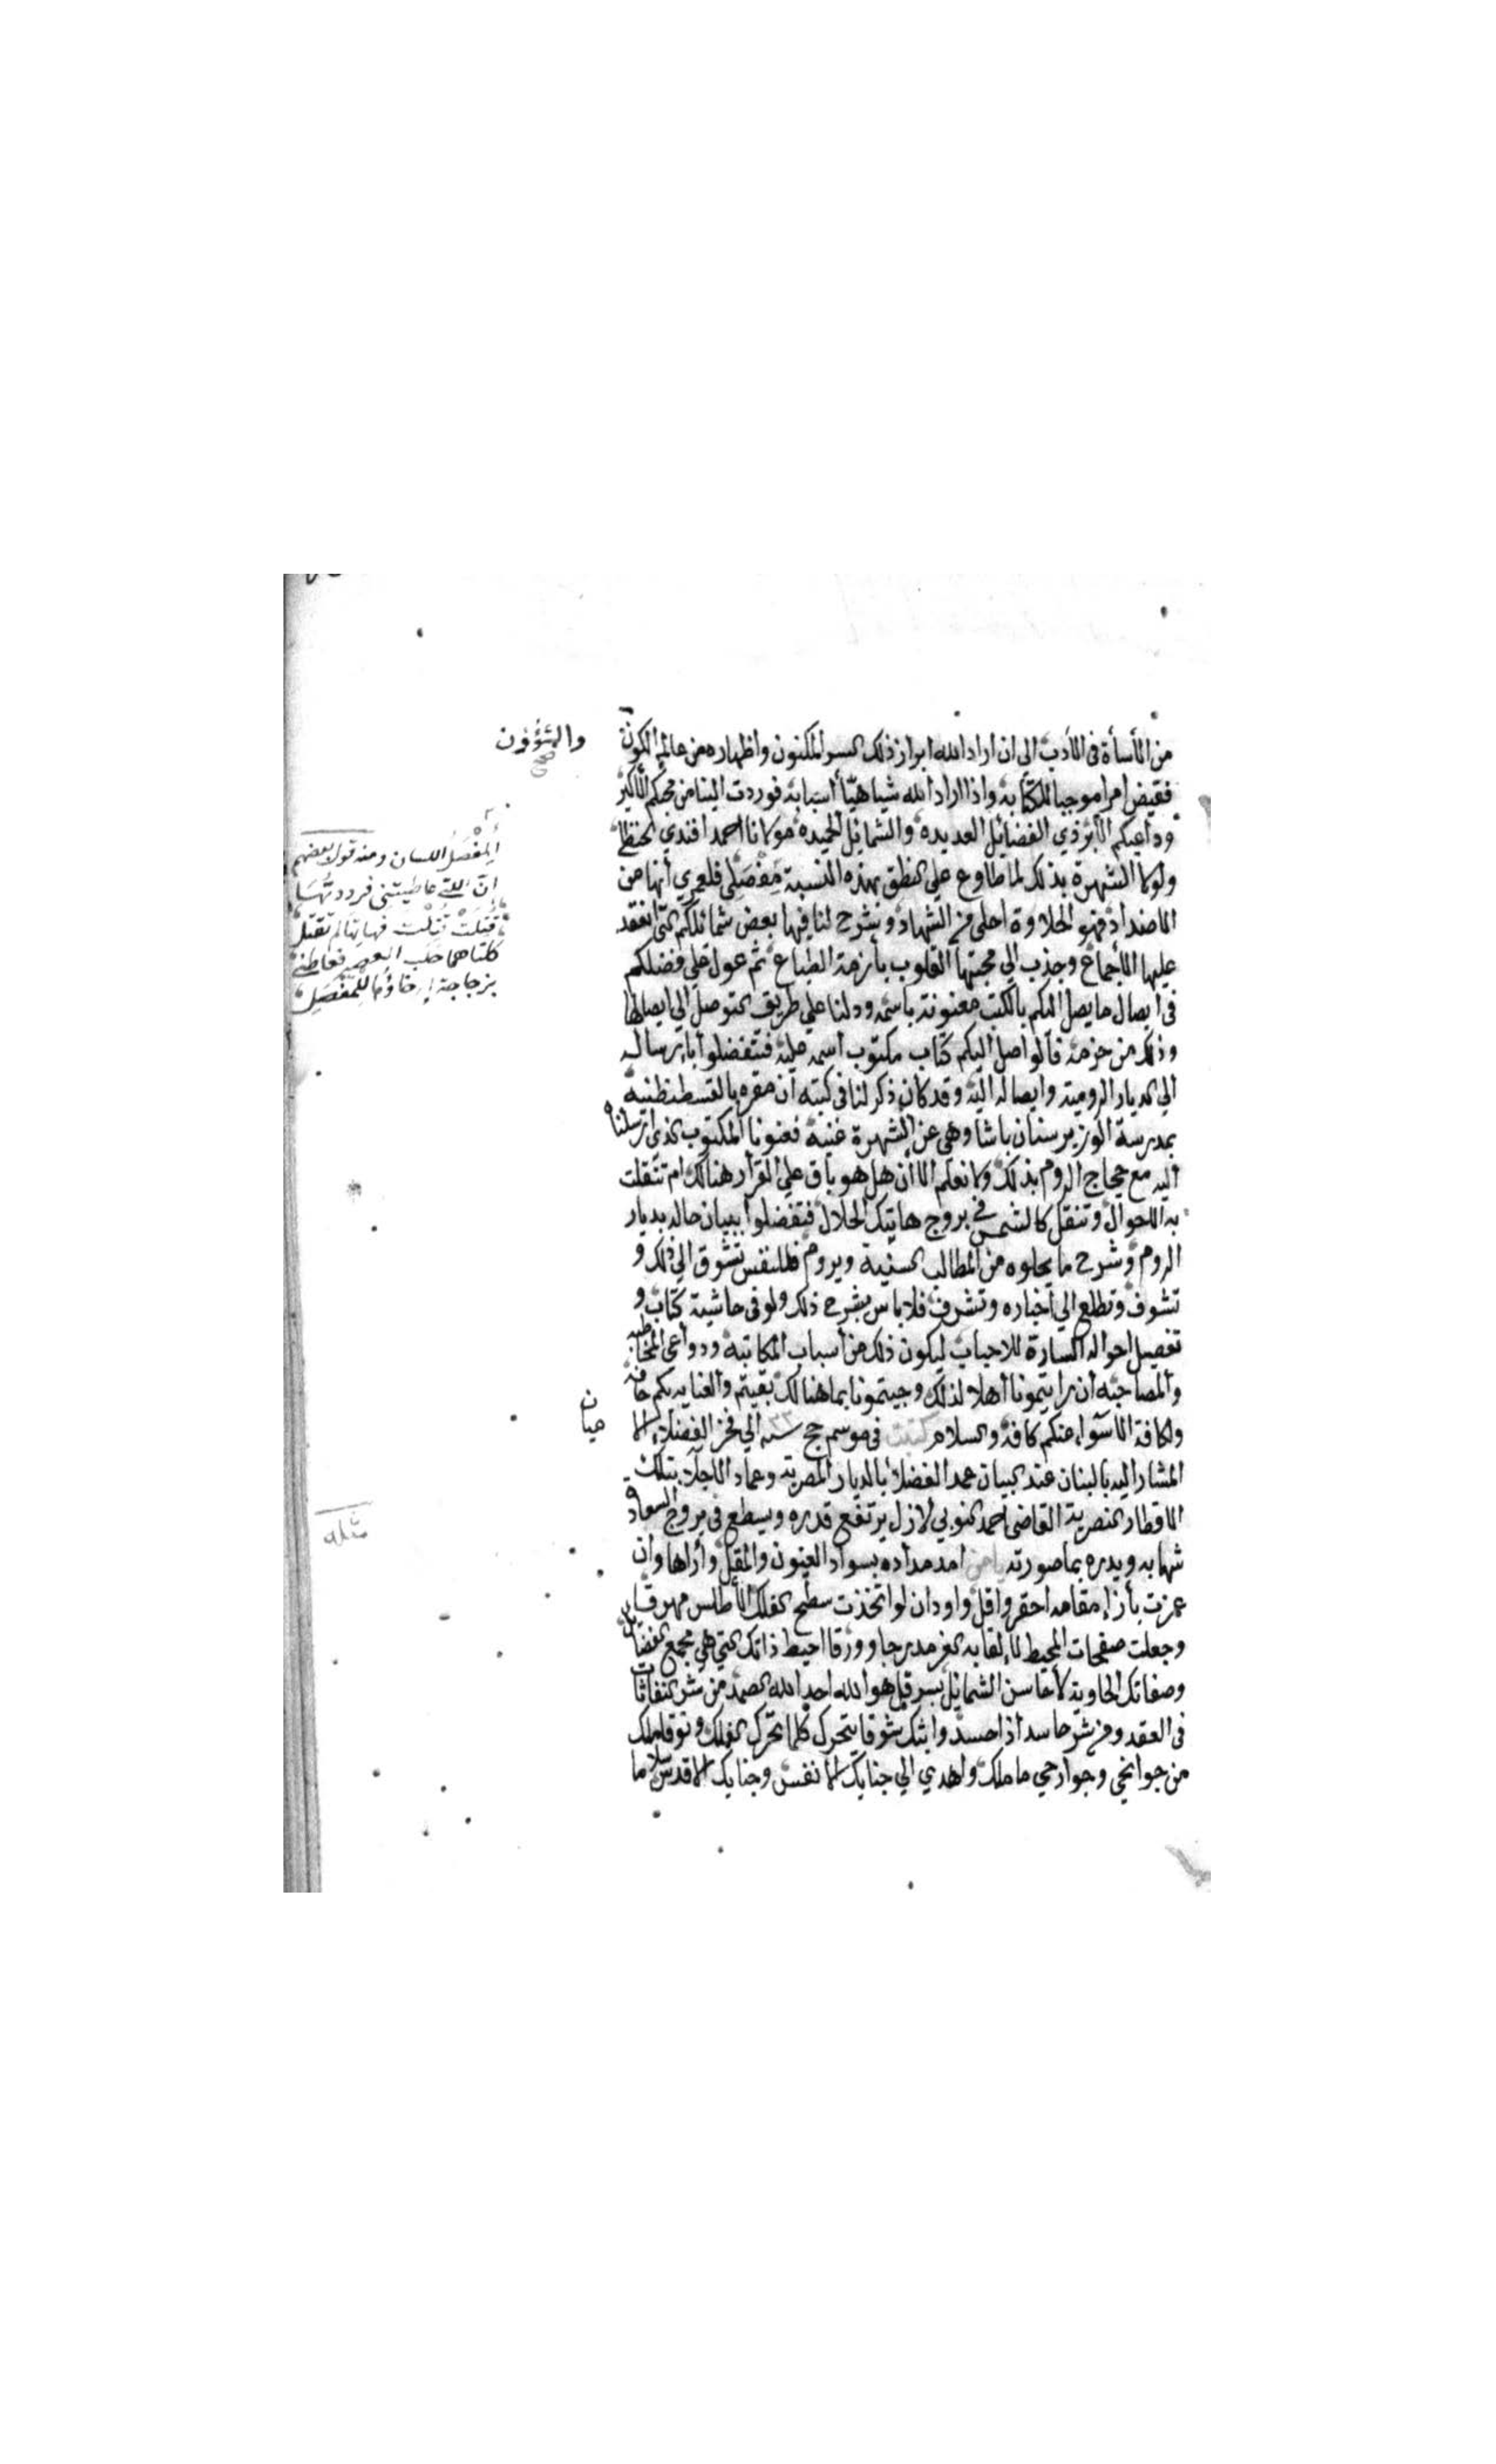 من الأسأة فى الأدب الى ان اراد الله ابراز ذلك السر المكنون واظهاره من عالم الكون
والشؤون
صح
فقيض امرا موجبا للكتابة واذا اراد الله شيا هيّأ أسبابه فوردت الينا من محبكم الأكبر
وداعيكم الأبر ذي الفضائل العديده والشمايل الحميده مولانا احمد افندي الحنظلي
ولولا الشهرة بذلك لما طاوع على النطق بهذه النسبة مِفْصَلي فلعمري أنها من
الاضداد فهو الحلاوة احلى من الشهاد ويشرح لنا فيها بعض شمائلكم التى انعقد
عليها الأجماع وجذب الي محبتها القلوب بأزمة الطباع ثم عول على فضلكم
فى ايصال ما يصل اليكم بالكتب معنونة باسمه ودلنا على طريق التوصل الي ايصالها
وذلك من حزمه فالواصل اليكم كتاب مكتوب اسمه عليه فتفضلوا بارساله
الي الديار الرومية وايصاله اليه وقد كان ذكر لنا فى كتبه ان مقره بالقسطنطنية
بمدرسة الوزير سنان باشا وهي عن الشهرة غنية فعنونا المكتوب الذي ارسلناه
اليه مع حجاج الروم بذلك ولا نعلم الاأن هل هو باق على القرار هنالك ام تنقلت
به الاحوال وتنقل كالشمس في بروج هاتيك الحلال فتفضلوا ببيان حاله بديار
الروم وشرح ما يحلوه من المطالب السنية ويروم فللنفس تشوق الي ذلك و
تشوف وتطلع الي أخباره وتشرف فلا باس بشرح ذلك ولو فى حاشية كتاب و
تفصيل احواله السارة للاحباب ليكون ذلك من أسباب المكاتبة ودواعي المخاطبه
والمصاحبه أن رايتمونا أهلا لذلك وجيتمونا بما هنالك بقيتم والعنايه بكم حافة
ولكافة الأسواء عنكم كافة والسلام كتبت فى موسم حج سنه ٣٣ الي فخر الفضلاء الا
عيان
المشار اليه بالبنان عند البيان عمد الفضلا بالديار المصرية وعماد الأجلا بتلك
الاقطار النصرية القاضى احمد النوبي لازل يرتفع قدره ويسطع فى بروج السعادة
شهابه وبدره بما صورته يا من امد مداده بسواد العيون والمقل وأراها وان
عزت بأزاء مقامه احقر واقل واود ان لو اتخذت سطح الفلك الأطلس مهرقا
وجعلت صفحات المحيط لألقابه الغر مدرجا وورقا احيط ذاتك التي هي مجمع الفضائل
وصفاتك الحاوية لأحاسن الشمايل بسر قل هو الله احد الله الصمد من شر النفاثات
فى العقد ومن شر حاسد أذا حسد وابثك شوقا يتحرك كلما تحرك الفلك وتوقا ملك
من جوانحي وجوارحي ما ملك واهدي الي جنابك الأنفس وجنابك الاقدس سلاما
اَلمِفْصَلُ اللسان ومنه قول بعضهم
اِنّ اللتى عاطيتنى فرددتُهَا
قُتِلَتْ قُتِلْتَ فهاتها لم تقتل
كلتاهما حلب العصير فعاطنى
بزجاجة ارخاؤها للمِفْصَلِ